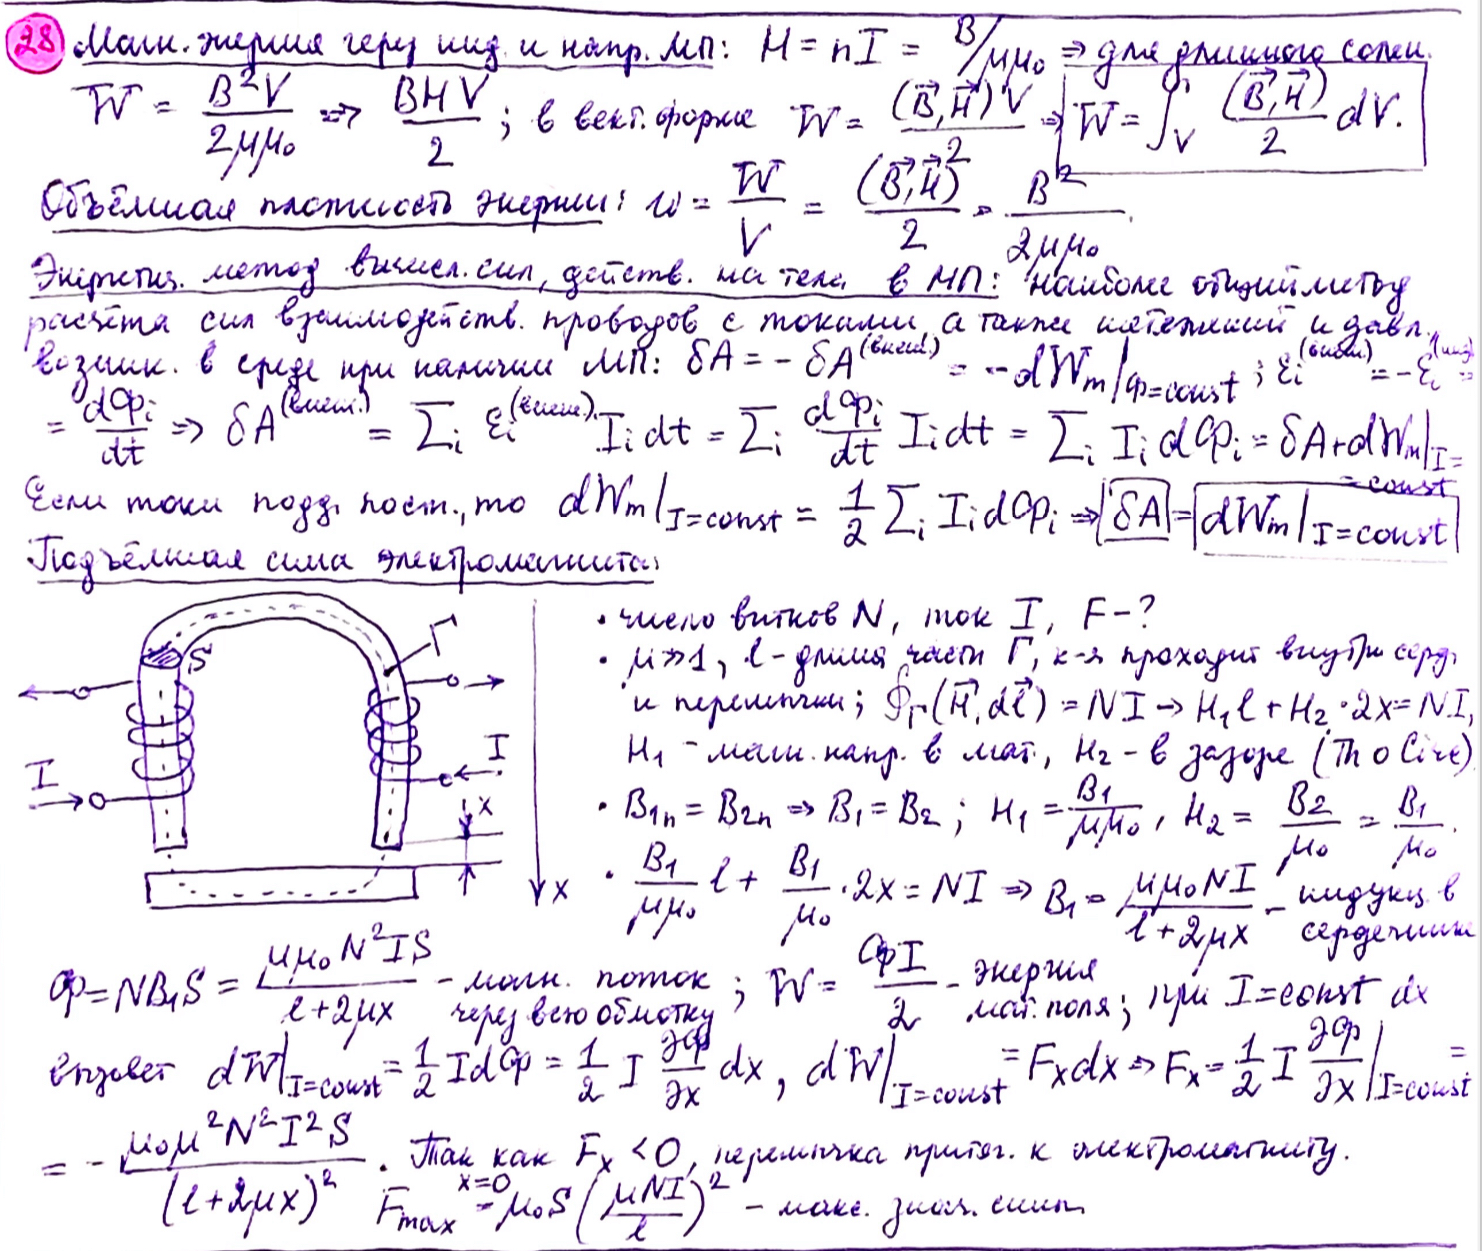 28 Магн. энергия через инд. и напр. МП: H = nI = B/μμ₀ ⇒ для длинного солен.
W = B²V/2μμ₀ ⇒ BHV/2; в вект. форме W = (B⃗,H⃗)V/2 ⇒ W = ∫_V (B⃗,H⃗)/2 dV.
Объёмная плотность энергии: w = W/V = (B⃗,H⃗)/2 = B²/2μμ₀.
Энергетич. метод вычисл. сил, действ. на тела в МП: наиболее общий метод
расчёта сил взаимодейств. проводов с токами, а также натяжений и давл.,
возник. в среде при наличии МП: δA = -δA^(внеш.) = -dWm|Φ=const; εi^(внеш.) = -εi^(инд) =
= dΦi/dt ⇒ δA^(внеш.) = Σi εi^(внеш.) Ii dt = Σi dΦi/dt Ii dt = Σi Ii dΦi = δA+dWm|I=
=const
Если токи подд. пост., то dWm|I=const = 1/2 Σi Ii dΦi ⇒ δA = dWm|I=const
Подъёмная сила электромагнита:
S
Γ
I
I
x
x
• число витков N, ток I, F-?
• μ≫1, l - длина части Γ, к-я проходит внутри серд.
и перемычки; ∮Γ(H⃗,dl⃗) = NI → H₁l + H₂·2x = NI,
H₁ - магн. напр. в мат., H₂ - в зазоре (Th о Circ)
• B₁n = B₂n ⇒ B₁ = B₂; H₁ = B₁/μμ₀, H₂ = B₂/μ₀ = B₁/μ₀.
• B₁/μμ₀ l + B₁/μ₀ ·2x = NI ⇒ B₁ = μμ₀NI/l+2μx - индукц. в
сердечнике
Φ = NB₁S = μμ₀N²IS/l+2μx - магн. поток
через всю обмотку; W = ΦI/2 - энергия
маг. поля; при I=const dx
вызовет dW|I=const = 1/2 IdΦ = 1/2 I ∂Φ/∂x dx, dW|I=const = Fx dx ⇒ Fx = 1/2 I ∂Φ/∂x|I=const =
= - μ₀μ²N²I²S/(l+2μx)². Так как Fx < 0, перемычка притяг. к электромагниту.
Fmax x=0 = μ₀S(μNI/l)² - макс. знач. силы